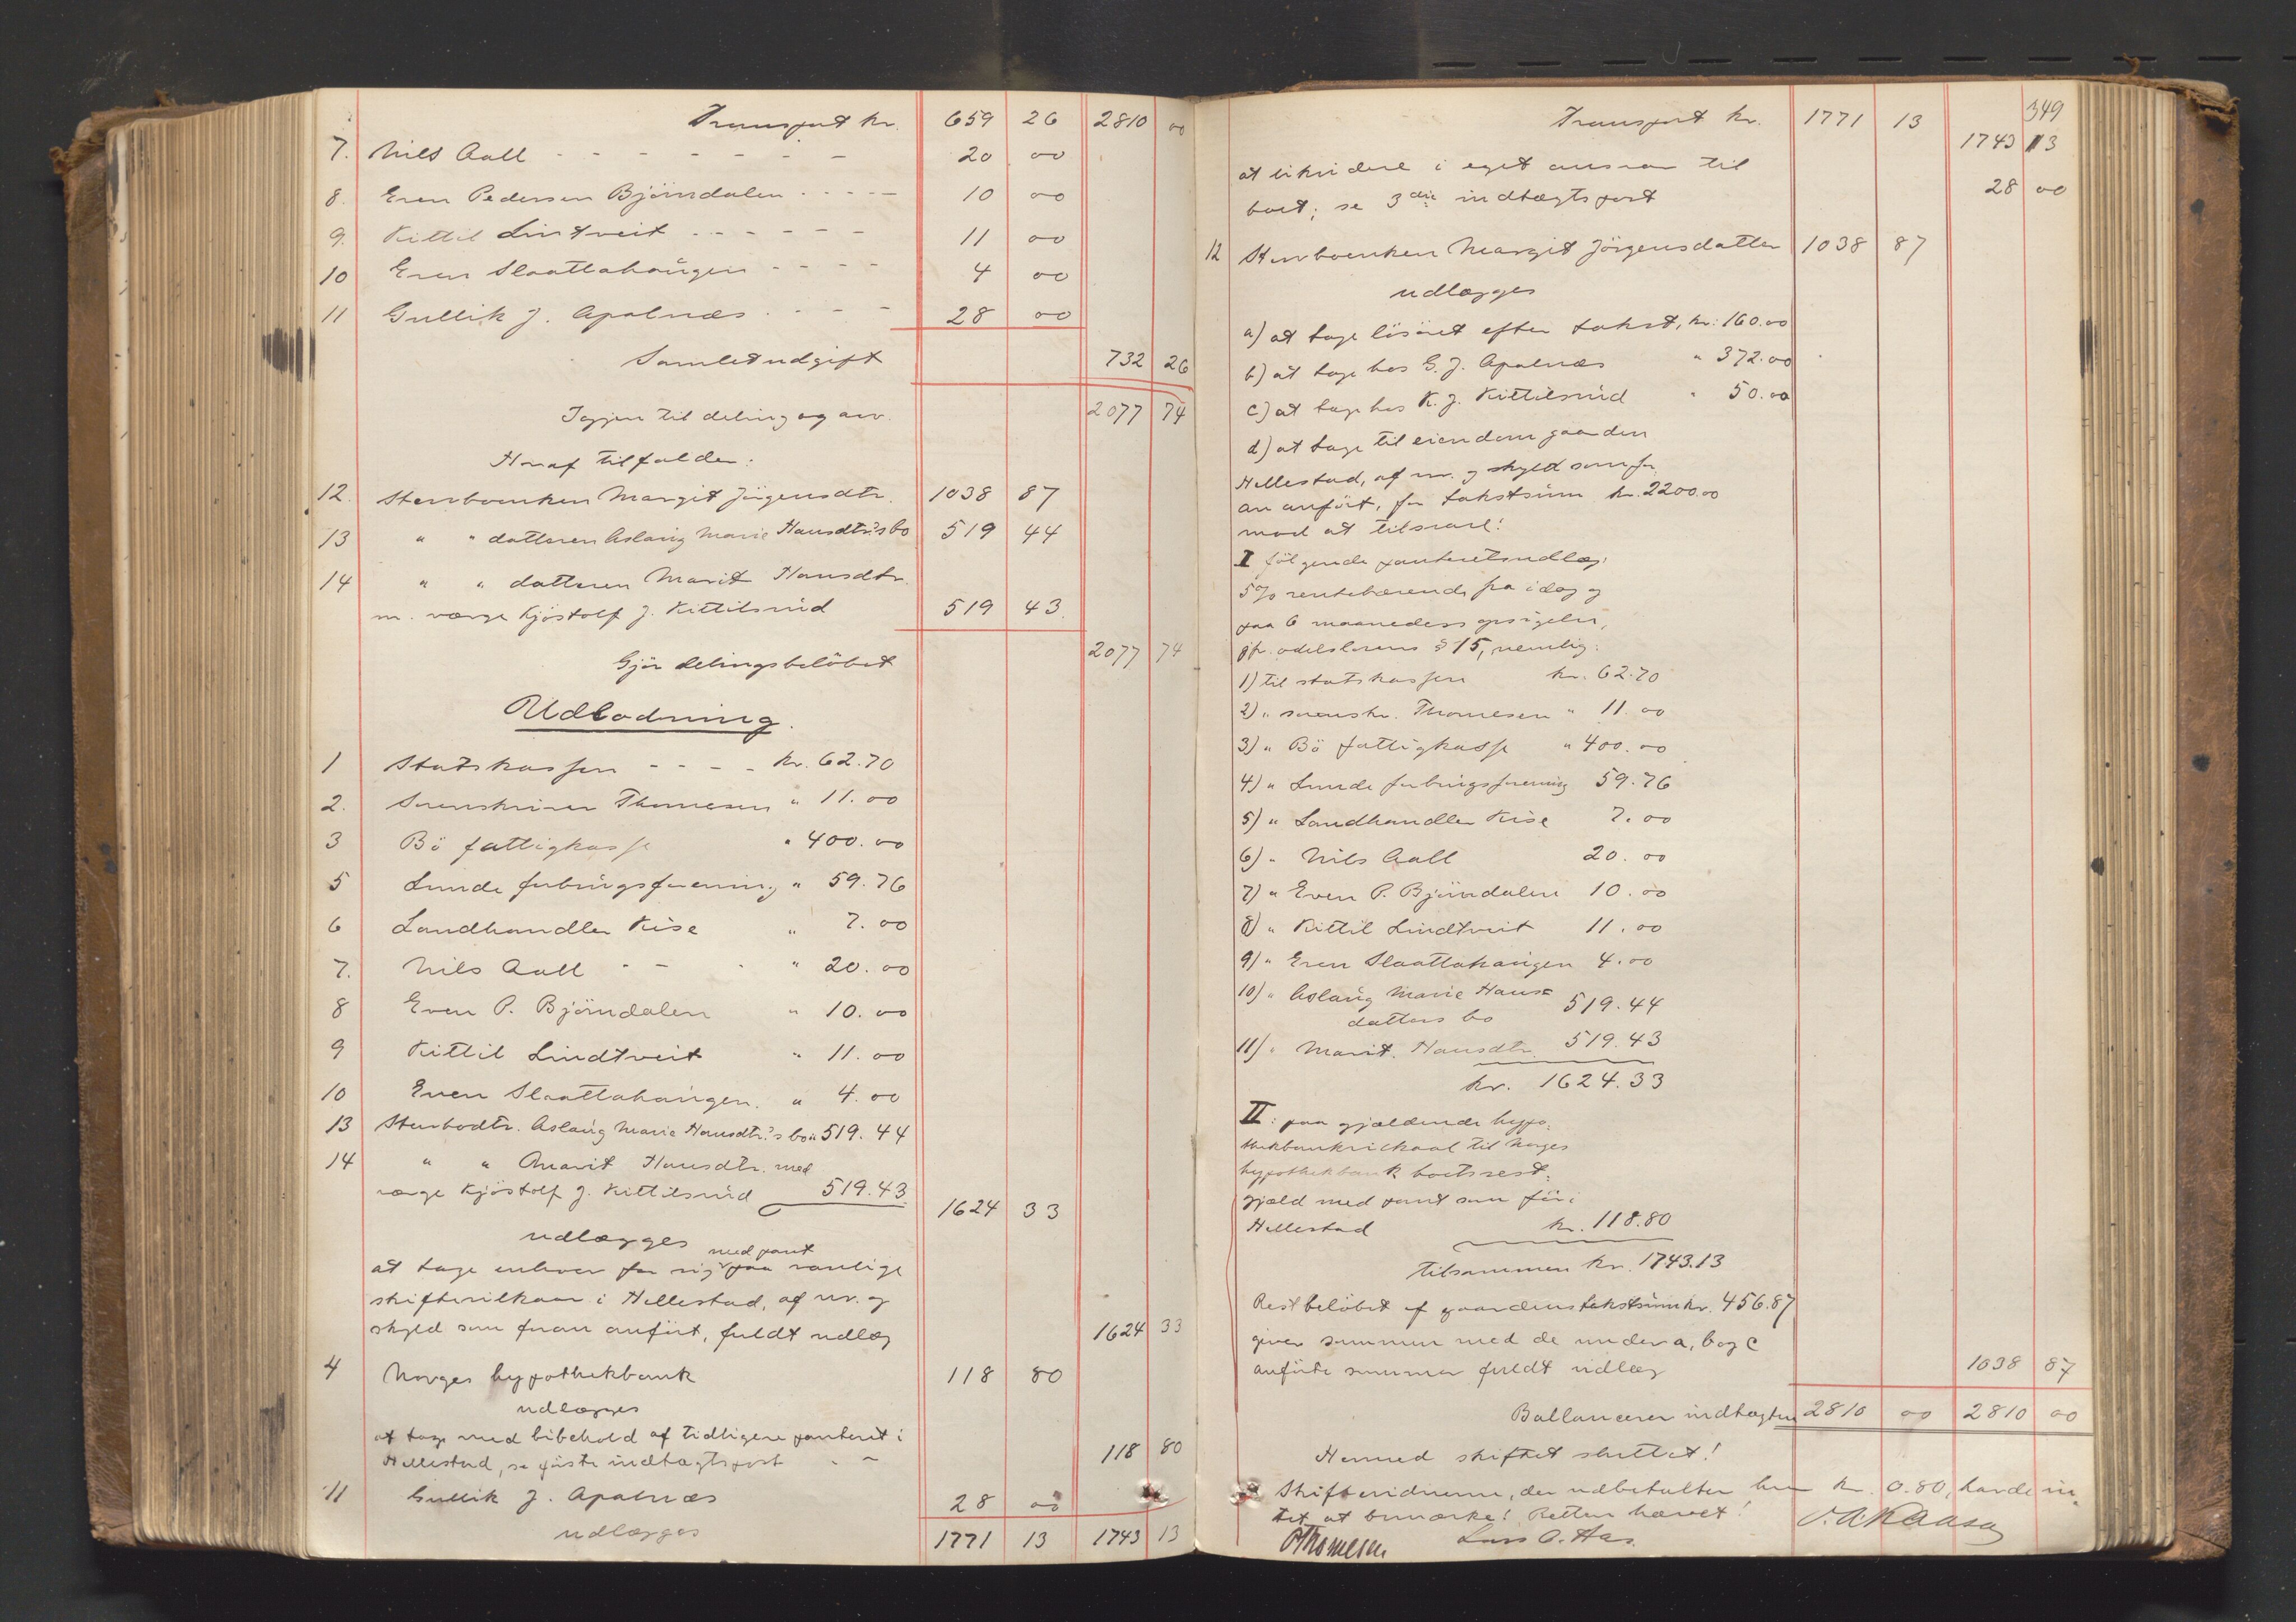 Transport kr. 659 26 2810 00
7. Nils Aall - - - - - - - 20 00
8. Even Pedersen Björndalen - - - - - 10 00
9. Kittil Lindtveit - - - - - - 11 00
10 Even Slaattahaugen - - - - 4 00
11 Gullik J. Apalnæs - - - - 28 00
Samlet udgift 732 26
Igjen til deling og arv. 2077 74
Heraf tilfalder:
12. Stervboenken Margit Jörgensdtr. 1038 87
13 " " datteren Aslaug Marie Hansdtr.'s bo 519 44
14 " " datteren Marit Hansdtr.
m. værge Kjöstolf J. Kittilsrud 519 43
Gjör delingsbelöbet 2077 74
Udlodning.
1 Statskassen - - - - kr. 62.70
2. Sorenskriver Thomesen " 11.00
3 Bö fattigkasse " 400.00
5 Lunde forbrugsforening " 59.76
6 Landhandler Kise " 7.00
7. Nils Aall - - - " 20.00
8 Even P. Björndalen " 10.00
9 Kittil Lindtveit " 11.00
10 Even Slaattahaugen. " 4.00
13 Stervbodtr. Aslaug Marie Hansdtr.'s bo " 519.44
14 " " Marit Hansdtr. med
værge Kjöstolf J. Kittilsrud 519.43 1624 33
udlægges
med pant
at tage enhver for sig paa vanlige
skiftevilkaar i Hellestad, af nr. og
skyld som foran anfört, fuldt udlæg 1624 33
4 Norges hypothekbank 118 80
udlægges
at tage med bibehold af tidligere panteret i
Hellestad, se förste indtægtspost - - 118 80
11 Gullik J. Apalnæs 28 00
udlægges 1771 13 1743 13
349
Transport kr. 1771 13 1743 13
at likvidere i eget ansvar til
boet; se 3die indtægtspost 28 00
12 Stervboenken Margit Jörgensdatter 1038 87
udlægges
a) at tage lösöret efter takst, kr. 160.00
b) at tage hos G. J. Apalnæs " 372.00
c) at tage hos K. J. Kittilsrud " 50.00
d) at tage til eiendom gaarden
Hellestad, af nr. og skyld som for
an anfört, for takstsum kr. 2200.00
mod at tilsvare:
I følgende panteretsudlæg,
5% rentebærende fra idag og
paa 6 maaneders opsigelse,
jfr. odelslovens § 15, nemlig:
1) til statskassen kr. 62.70
2) " sorenskr. Thomesen " 11.00
3) " Bö fattigkasse " 400.00
4) " Lunde forbrugsforening 59.76
5) " Landhandler Kise 7.00
6) " Nils Aall 20.00
7) " Even P. Björndalen 10.00
8) " Kittil Lindtveit 11.00
9) " Even Slaattahaugen 4.00
10) " Aslaug Marie Hans-
datters bo 519.44
11) " Marit Hansdtr. 519.43
kr. 1624.33
II: paa gjældende hypo-
thekbankvilkaar til Norges
hypothekbank boets rest-
gjæld med pant som för i
Hellestad kr. 118.80
tilsammen kr. 1743.13
Restbelöbet af gaardens takstsum kr. 456.87
giver sammen med de under a, b og c
anförte summer fuldt udlæg 1038 87
Ballancerer indtægten 2810 00 2810 00
Hermed skiftet sluttet!
Skiftevidnerne, der udbetaltes hver kr. 0.80, havde in-
tet at bemærke! Retten hævet!
Thomesen Lars O. Aas